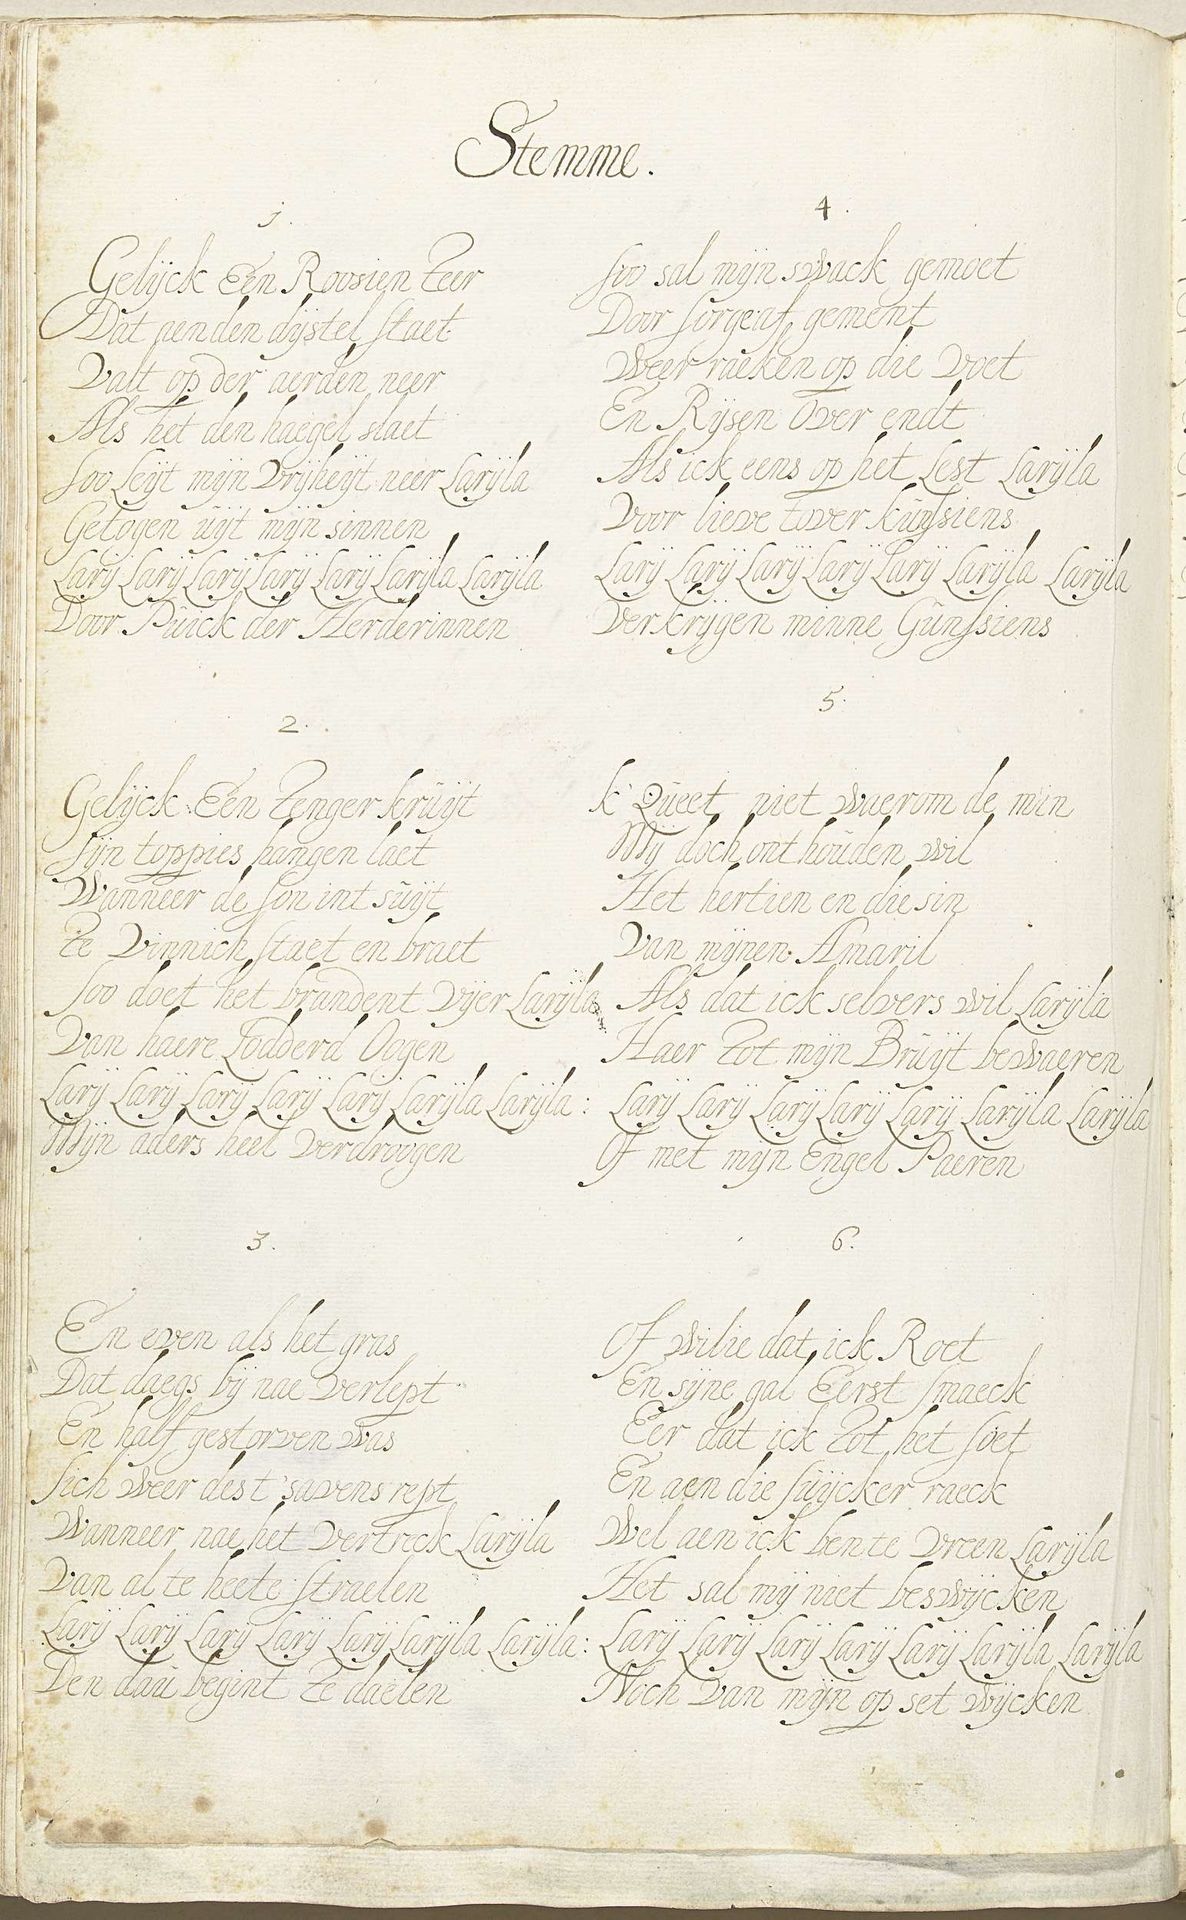 Stemme.
1.
Gelijck Een Roosien teer
Dat aenden dijstel staet
Valt op der aerden neer
Als het den haegel slaet
Soo Leijt mijn Vrijheijt neer Larijla
Getogen uijt mijn sinnen
Larij Larij Larij Larij Larij Larijla Larijla
Door Puick der Herderinnen
2.
Gelijck Een tenger kruijt
Sijn toppies hangen laet
Wanneer de son int suijt
te Vinnich staet en braet
Soo doet het brandent Vijer Larijla
Van haere Lodderd Oogen
Larij Larij Larij Larij Larij Larijla Larijla:
Mijn aders heel Verdroogen
3.
En even als het gras
Dat daegs bij nae Verlept
En half gestorven was
Sich weer dest savens rept
Wanneer nae het Vertreck Larijla
Van al te heete straelen
Larij Larij Larij Larij Larij Larijla Larijla:
Den dau begint te daelen
4.
Soo sal mijn swack gemoet
Door sorge af gement
Weer raeken op die Voet
En Rijsen Over endt
Als ick eens op het Lest Larijla
Voor lieve tover kunssiens
Larij Larij Larij Larij Larij Larijla Larijla
Verkrijgen minne Gunssiens
5.
k' Queet niet waerom de min
Mij doch onthouden wil
Het hertien en die sin
Van mijnen Amaril
Als dat ick selvers wil Larijla
Haer tot mijn Bruijt bewaeren
Larij Larij Larij Larij Larij Larijla Larijla
Of met mijn Engel Paeren
6.
Of wilie dat ick Roet
En sijne gal Eerst smaeck
Eer dat ick tot het soet
En aen die suijcker raeck
Wel aen ick ben te vreen Larijla
Het sal mij niet beswijcken
Larij Larij Larij Larij Larij Larijla Larijla
Noch van mijn op set wijcken